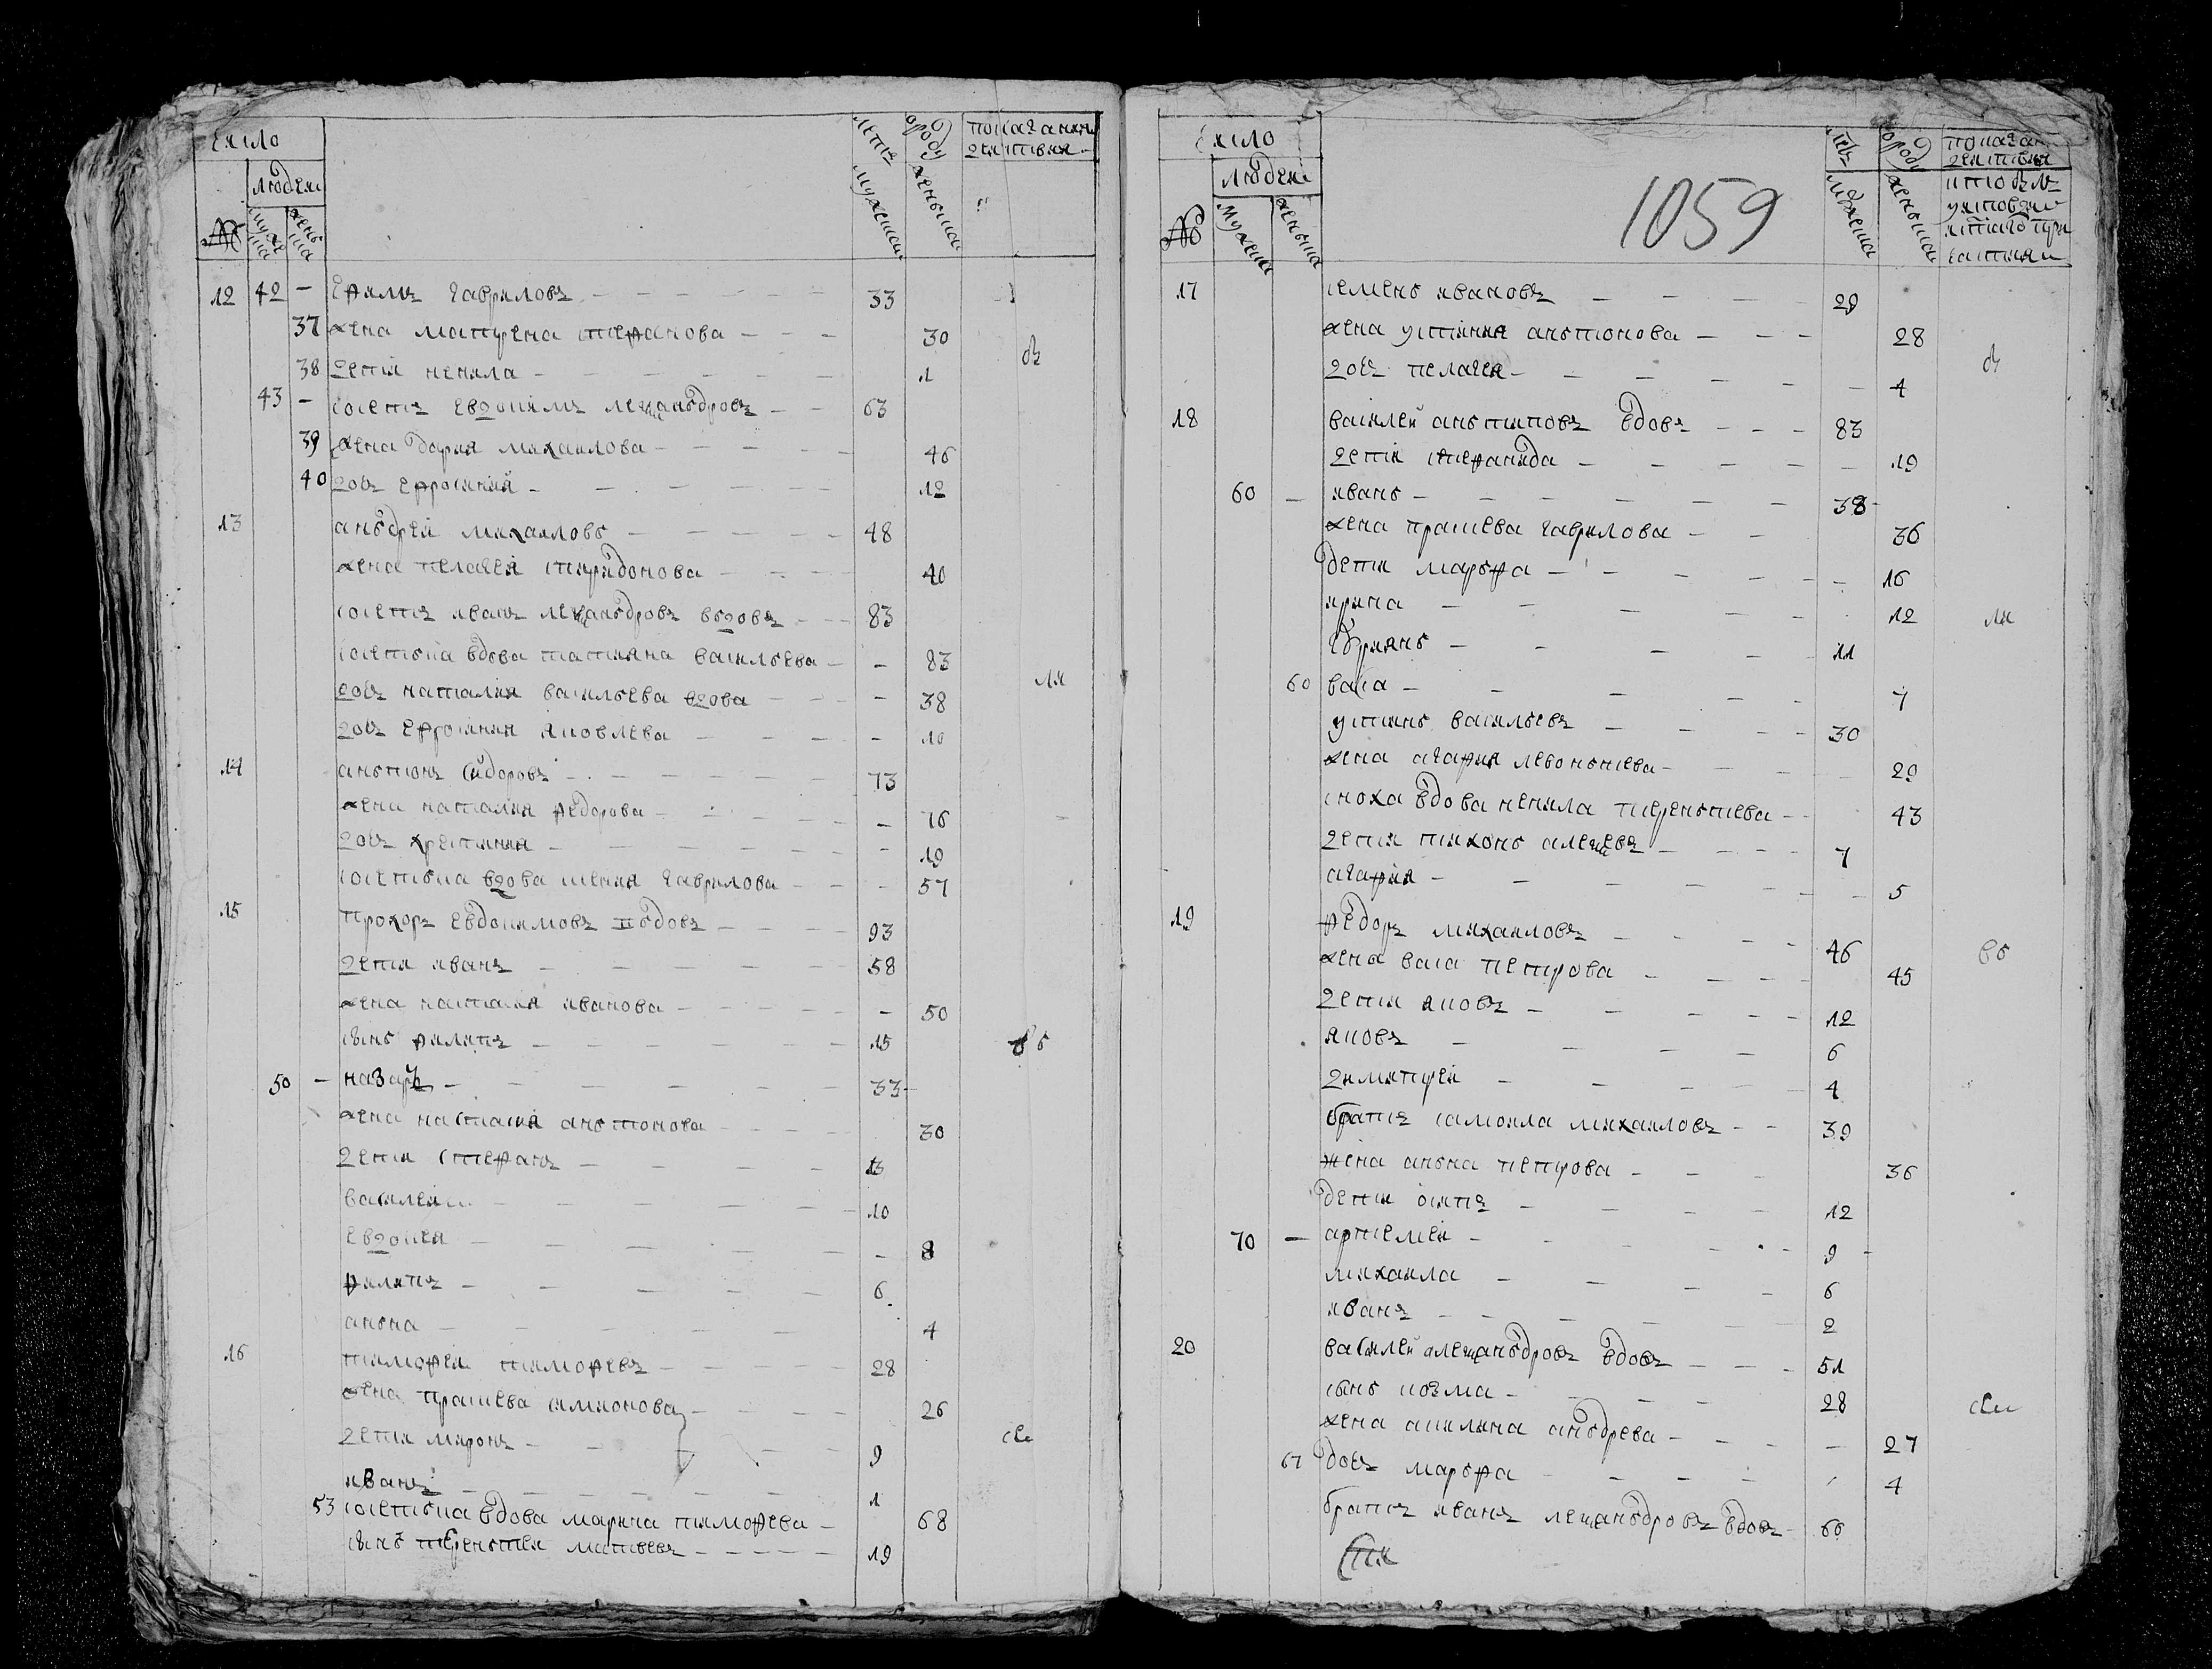 число
людеи
№
муже
ска
женъ
ска
летъ
мужеска
ороду
женьска
показание
деиства
12 42 – ефимъ гавриловъ 33
37 жена матрена стефанова 30
38 дети ненила 1
43 – соседъ евдокимъ лександровъ 63
39 жена дария михаилова 46
40 дочь ефросиния 12
13 аньдреи михаиловъ 48
жена пелагея спиридонова 40
соседъ иванъ лександровъ вдовъ 83
соседька вдова татияна васильева 83
дочь наталия васильева вдова 38
дочь ефросиния яковлева 10
14 аньтонъ сидоровъ 73
жена наталия федорова 76
дочь хрестиния 19
соседька вдова ксения гаврилова 57
15 прохоръ евдокимовъ вдовъ 93
дети иванъ 58
жена наталия иванова 50
сынъ филипъ 15
50 – назаръ 33
жена настасия аньтонова 30
дети стефанъ 13
василеи 10
евдокея 8
филипъ 6
аньна 4
16 тимофеи тимофеевъ 28
жена прасковя симионова 26
дети миронъ 9
иванъ 1
53 соседька вдова марина тимофеева 68
сынъ терентеи матвеевъ 19
число
людеи
№
мужеска
женьска
1059
летъ
мужеска
ороду
женьска
17 семенъ ивановъ 29
жена устиния аньтонова 28
дочь пелагея 4
18 василеи аньтиповъ вдовъ 83
дети стефанида 19
60 – иванъ 38
жена прасковя гаврилова 36
дети марьфа 16
ирина 12
60 васа 7
устинъ васильевъ 30
жена агафия левонътева 29
сноха вдова ненила терентева 43
дети тихонъ алексеевъ 7
агафия 5
19 федоръ михаиловъ 46
жена васа петрова 45
дети яковъ 12
яковъ 6
димитреи 4
братъ самоила михаиловъ 39
жена аньна петрова 36
дети осипъ 12
70 – артемеи 9
михаила 6
иванъ 2
20 василеи александровъ вдовъ 51
сынъ козма 28
жена акилина андреева 27
61 дочь марьфа 4
братъ иванъ лександровъ вдовъ 66